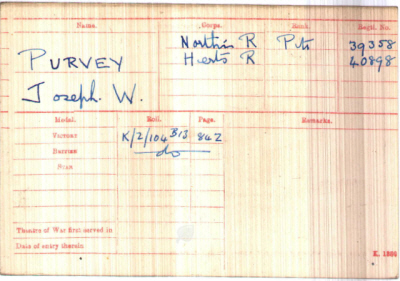 Name. Corps. Rank. Regtl. No.
PURVEY Northn R Pte 39358
Herts R 40898
Joseph. W.
Medal. Roll. Page. Remarks.
Victory K/2/104 B13 842
British do
Star
Theatre of War first served in
Date of entry therein
K. 1380